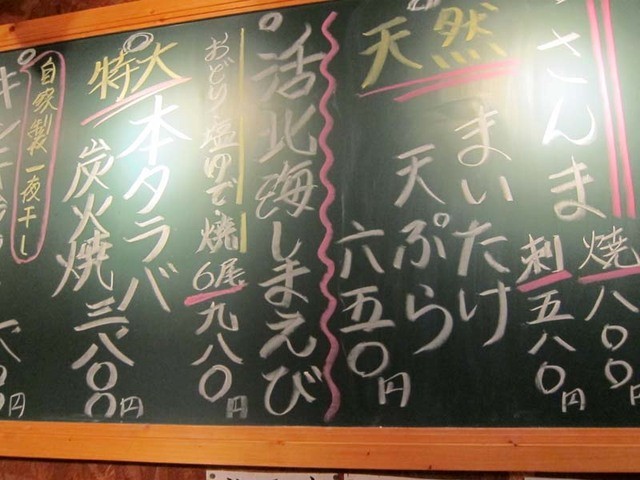 さんま
焼八〇〇円
刺五八〇円
天然
まいたけ
天ぷら
六五〇円
活北海しまえび
おどり・塩ゆで・焼
6尾
九八〇円
特大
本タラバ
炭火焼
三、八〇〇円
自家製一夜干し